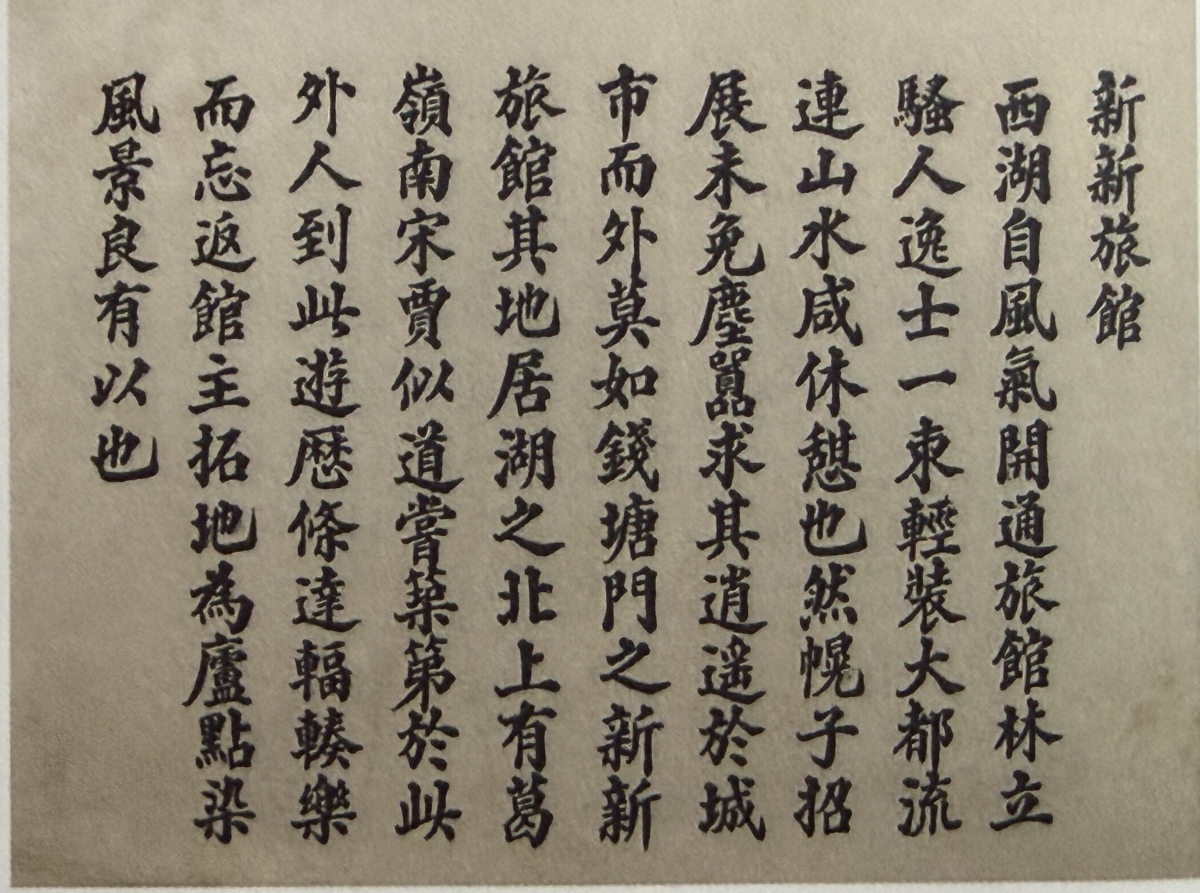 新新旅館
西湖自風氣開通旅館林立
騷人逸士一束輕裝大都流
連山水咸休憩也然幌子招
展未免塵囂求其逍遥於城
市而外莫如錢塘門之新新
旅館其地居湖之北上有葛
嶺南宋賈似道嘗築第於此
外人到此遊歷條達輻輳樂
而忘返館主拓地為廬點染
風景良有以也